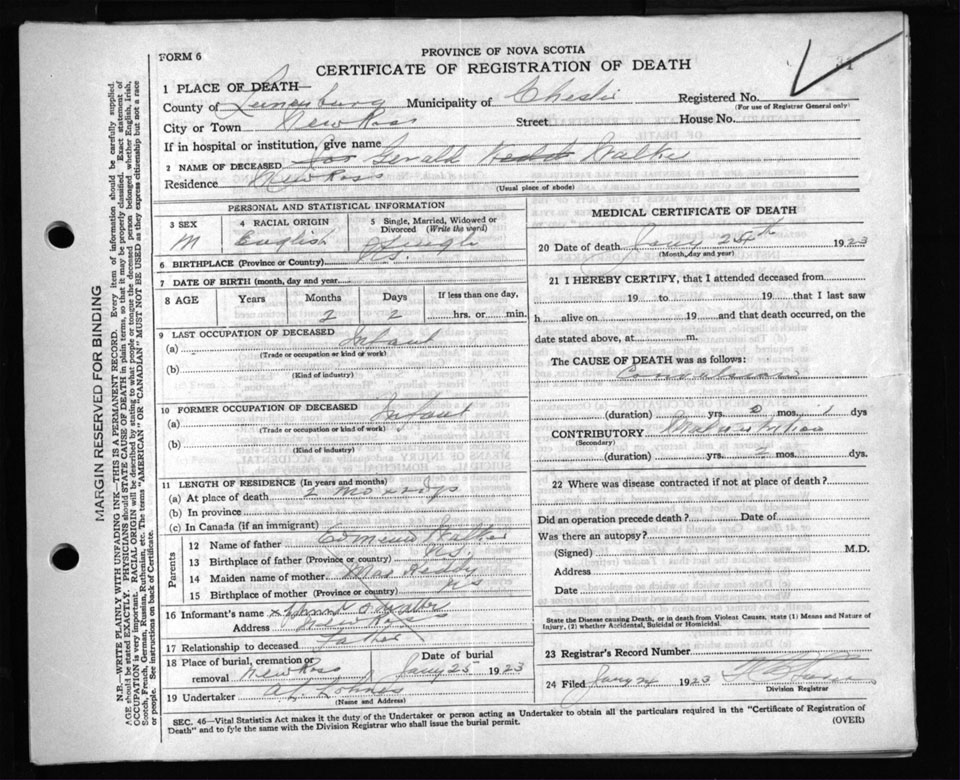 FORM 6
PROVINCE OF NOVA SCOTIA
CERTIFICATE OF REGISTRATION OF DEATH
1 PLACE OF DEATH—
County of Lunenburg Municipality of Chester Registered No.
(For use of Registrar General only)
City or Town New Ross Street House No.
If in hospital or institution, give name
2 NAME OF DECEASED Gerald Walker
Residence New Ross
(Usual place of abode)
PERSONAL AND STATISTICAL INFORMATION
3 SEX M
4 RACIAL ORIGIN English
5 Single, Married, Widowed or Divorced (Write the word) Single
6 BIRTHPLACE (Province or Country) N.S.
7 DATE OF BIRTH (month, day and year)
8 AGE Years Months Days If less than one day,
2 2 hrs. or min.
9 LAST OCCUPATION OF DECEASED
(a) Infant
(Trade or occupation or kind of work)
(b)
(Kind of industry)
10 FORMER OCCUPATION OF DECEASED
(a) Infant
(Trade or occupation or kind of work)
(b)
(Kind of industry)
11 LENGTH OF RESIDENCE (In years and months)
(a) At place of death 2 mo
(b) In province
(c) In Canada (if an immigrant)
Parents
12 Name of father Walker
13 Birthplace of father (Province or country) N.S.
14 Maiden name of mother
15 Birthplace of mother (Province or country) N S
16 Informant's name Walker
Address New Ross
17 Relationship to deceased Father
18 Place of burial, cremation or removal New Ross Date of burial Jany 25 1923
19 Undertaker
(Name and Address)
MEDICAL CERTIFICATE OF DEATH
20 Date of death Jany 24th 1923
(Month, day and year)
21 I HEREBY CERTIFY, that I attended deceased from
19 to 19 that I last saw
h alive on 19 and that death occurred, on the
date stated above, at m.
The CAUSE OF DEATH was as follows:
Convulsions
(duration) yrs. 0 mos. 1 dys
CONTRIBUTORY
(Secondary)
(duration) yrs. 2 mos. dys.
22 Where was disease contracted if not at place of death?
Did an operation precede death? Date of
Was there an autopsy?
(Signed) M.D.
Address
Date
State the Disease causing Death, or in death from Violent Causes, state (1) Means and Nature of
Injury, (2) whether Accidental, Suicidal or Homicidal.
23 Registrar's Record Number
24 Filed Jany 24 1923
Division Registrar
SEC. 46—Vital Statistics Act makes it the duty of the Undertaker or person acting as Undertaker to obtain all the particulars required in the "Certificate of Registration of
Death" and to fyle the same with the Division Registrar who shall issue the burial permit. (OVER)
MARGIN RESERVED FOR BINDING
N.B.—WRITE PLAINLY WITH UNFADING INK—THIS IS A PERMANENT RECORD. Every item of information should be carefully supplied.
AGE should be stated EXACTLY. PHYSICIANS should STATE CAUSE OF DEATH in plain terms, so that it may be properly classified. Exact statement of
OCCUPATION is very important. RACIAL ORIGIN will be described by stating to what people or tongue the deceased person belonged whether English, Irish,
Scotch, French, German, Russian, Ruthenian, etc. The terms "AMERICAN" OR "CANADIAN" MUST NOT BE USED as they express citizenship but not a race
or people. See instructions on back of Certificate.